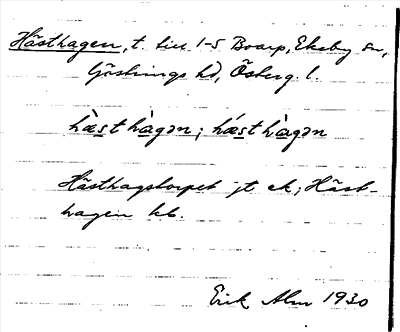 Hästhagen, t. till 1-5 Boarp, Ekeby sn,
Göstrings hd, Österg. l.
hæ̀st hàgən; hǽst hàgən
Hästhagstorpet jt ek; Häst-
hagen kb.
Erik Alm 1930